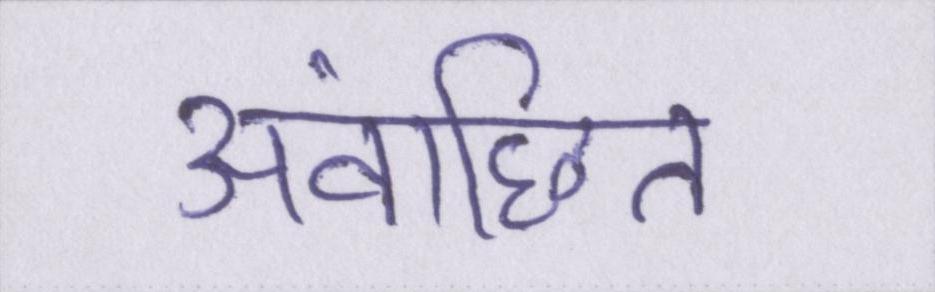 अंवाछित